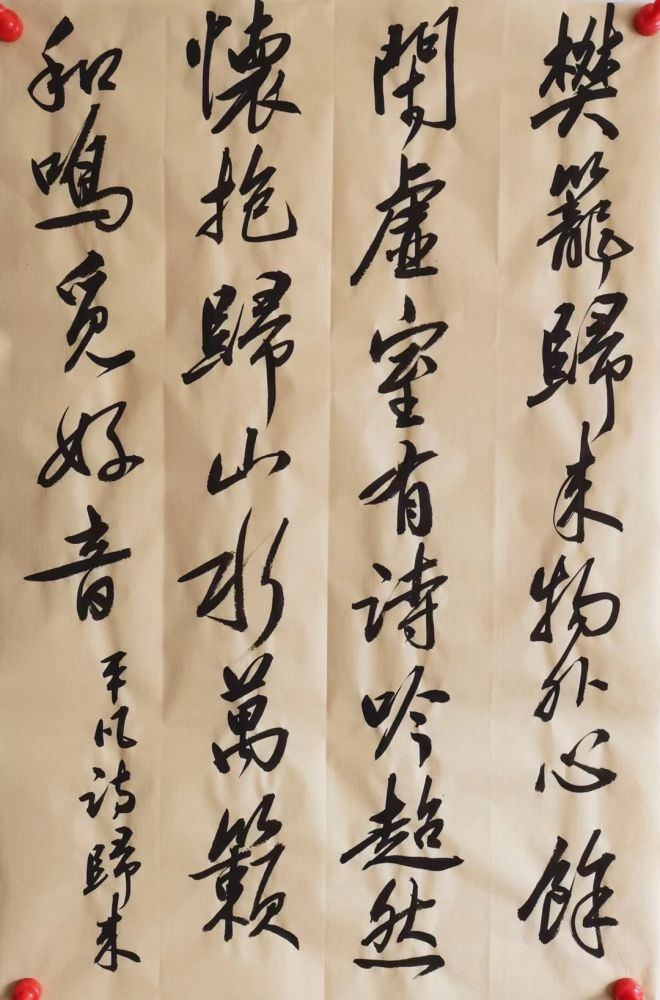 樊籠歸来物外心餘
閑虛室有詩吟超然
懷抱歸山水萬籟
和鳴覓好音
平凡詩歸来